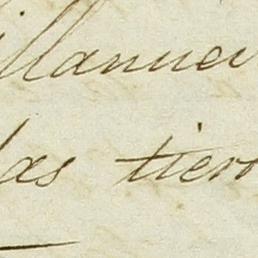 illanuev
las tier